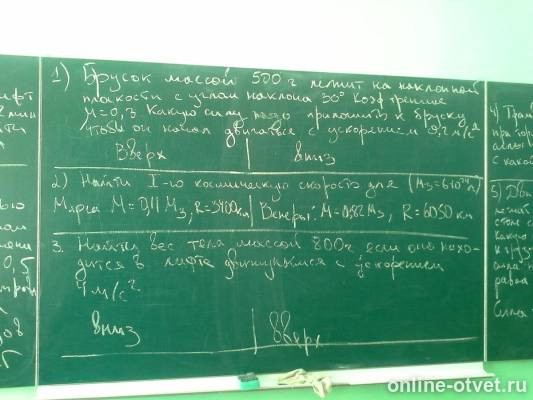 1) Брусок массой 500 г лежит на наклонной
плоскости с углом наклона 30° Коэф трения
μ=0,3 Какую силу надо приложить к бруску
чтобы он начал двигаться с ускорением 0,2 м/с²
Вверх | вниз
2) Найти I-ю космическую скорость для (Mз=6·10²⁴
Марса M=0,11 Mз, R=3400км | Венеры: M=0,82Mз, R=6050 км
3. Найти вес тела массой 800г если оно нахо-
дится в лифте движущимся с ускорением
4 м/с²
вниз | вверх
4)
с какой
5)
Какую
равна
0,5
online-otvet.ru